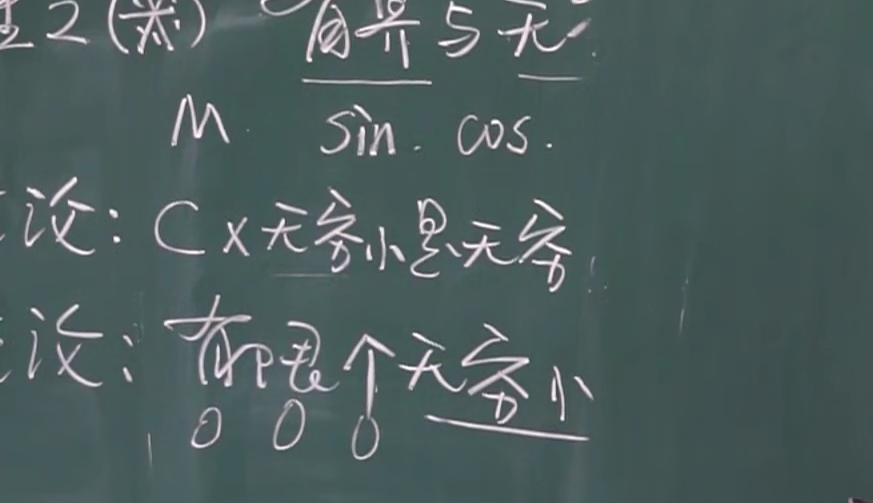 2(乘) 有界与无
M. sin. cos.
论: C×无穷小是无穷
论: 有限个无穷小
0 0 0